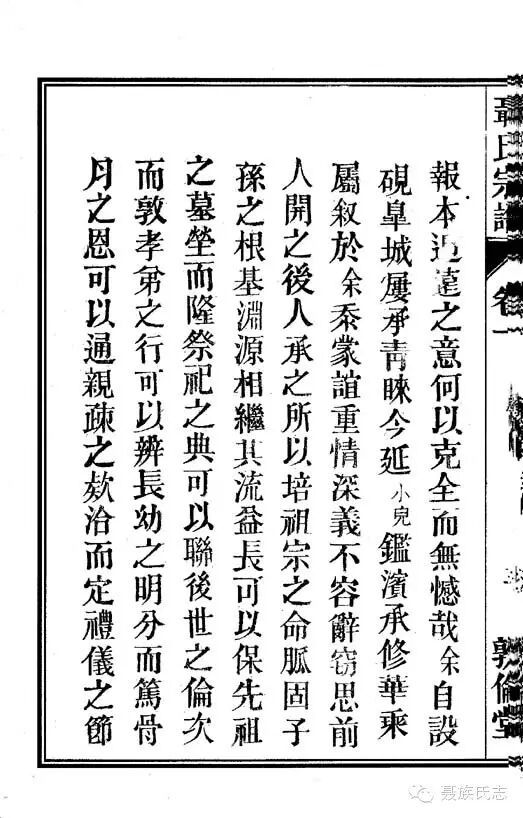 聶氏宗譜
卷一
敦倫堂
報本追遠之意何以克全而無憾哉余自設
硯皐城屢承靑睞今延小兒鑑濱承修華乘
屬叙於余叅蒙誼重情深義不容辭窃思前
人開之後人承之所以培祖宗之命脈固子
孫之根基淵源相繼其流益長可以保先祖
之墓塋而隆祭祀之典可以聯後世之倫次
而敦孝弟之行可以辨長幼之明分而篤骨
月之恩可以通親疎之欵洽而定禮儀之節
聂族氏志